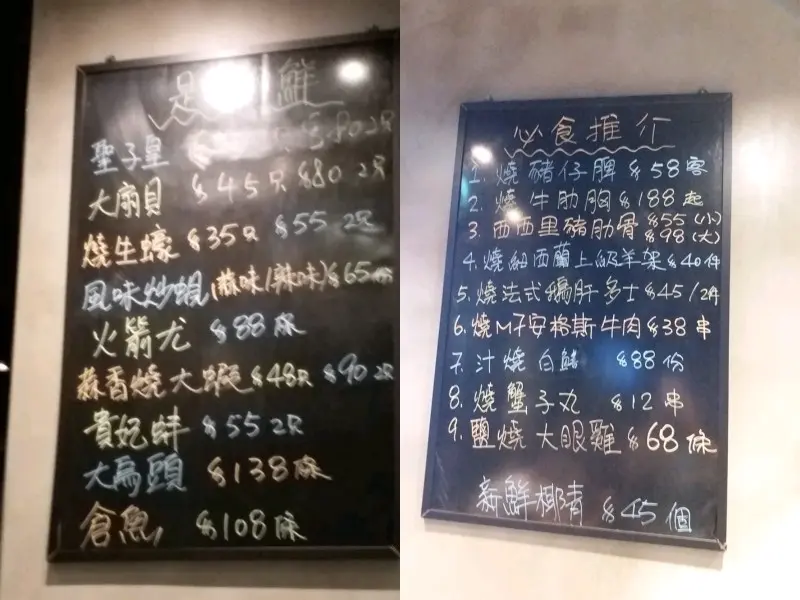 足 鮮
聖子皇 802只
大扇貝 $45只 $80 2只
燒生蠔 $35只 $55 2只
風味炒蜆(蒜味/辣味)$65份
火箭龙 $88條
蒜香燒大蝦 $48只 $90 2只
貴妃蚌 $55 2只
大烏頭 $138條
倉魚 $108條
必食推介
1. 燒豬仔脾 $58客
2. 燒牛肋胸 $188起
3. 西西里豬肋骨 $55(小) $98(大)
4. 燒紐西蘭上級羊架 $40件
5. 燒法式鵝肝多士 $45/2件
6. 燒M不安格斯牛肉 $38串
7. 汁燒白鱔 $88份
8. 燒蟹子丸 $12串
9. 鹽燒大眼雞 $68條
新鮮椰青 $45個